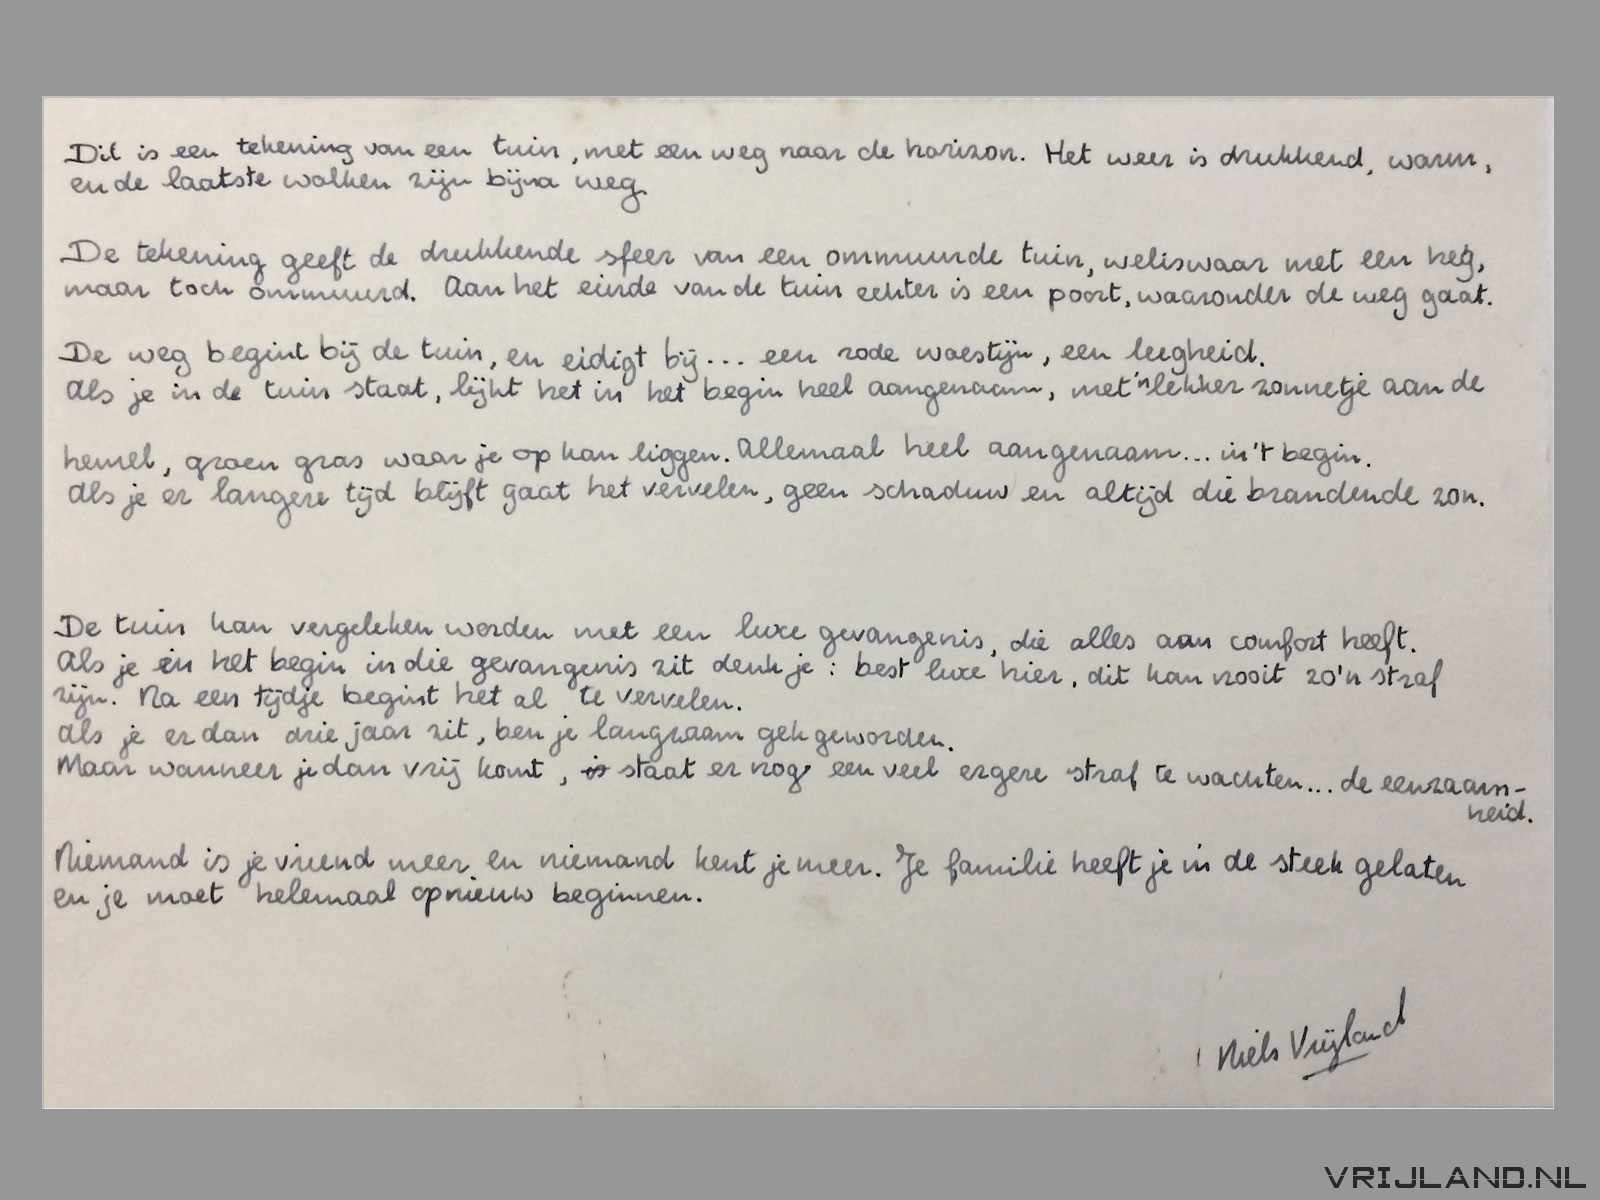 Dit is een tekening van een tuin, met een weg naar de horizon. Het weer is drukkend, warm,
en de laatste wolken zijn bijna weg.
De tekening geeft de drukkende sfeer van een ommuurde tuin, weliswaar met een heg,
maar toch ommuurd. Aan het einde van de tuin echter is een poort, waaronder de weg gaat.
De weg begint bij de tuin, en eidigt bij... een rode woestijn, een leegheid.
Als je in de tuin staat, lijkt het in het begin heel aangenaam, met 'n lekker zonnetje aan de
hemel, groen gras waar je op kan liggen. Allemaal heel aangenaam... in 't begin.
Als je er langere tijd blijft gaat het vervelen, geen schaduw en altijd die brandende zon.
De tuin kan vergeleken worden met een luxe gevangenis, die alles aan comfort heeft.
Als je in het begin in die gevangenis zit denk je: best luxe hier, dit kan nooit zo'n straf
zijn. Na een tijdje begint het al te vervelen.
Als je er dan drie jaar zit, ben je langzaam gek geworden.
Maar wanneer je dan vrij komt, is staat er nog een veel ergere straf te wachten... de eenzaam-
heid.
Niemand is je vriend meer en niemand kent je meer. Je familie heeft je in de steek gelaten
en je moet helemaal opnieuw beginnen.
Niels Vrijland
VRIJLAND.NL